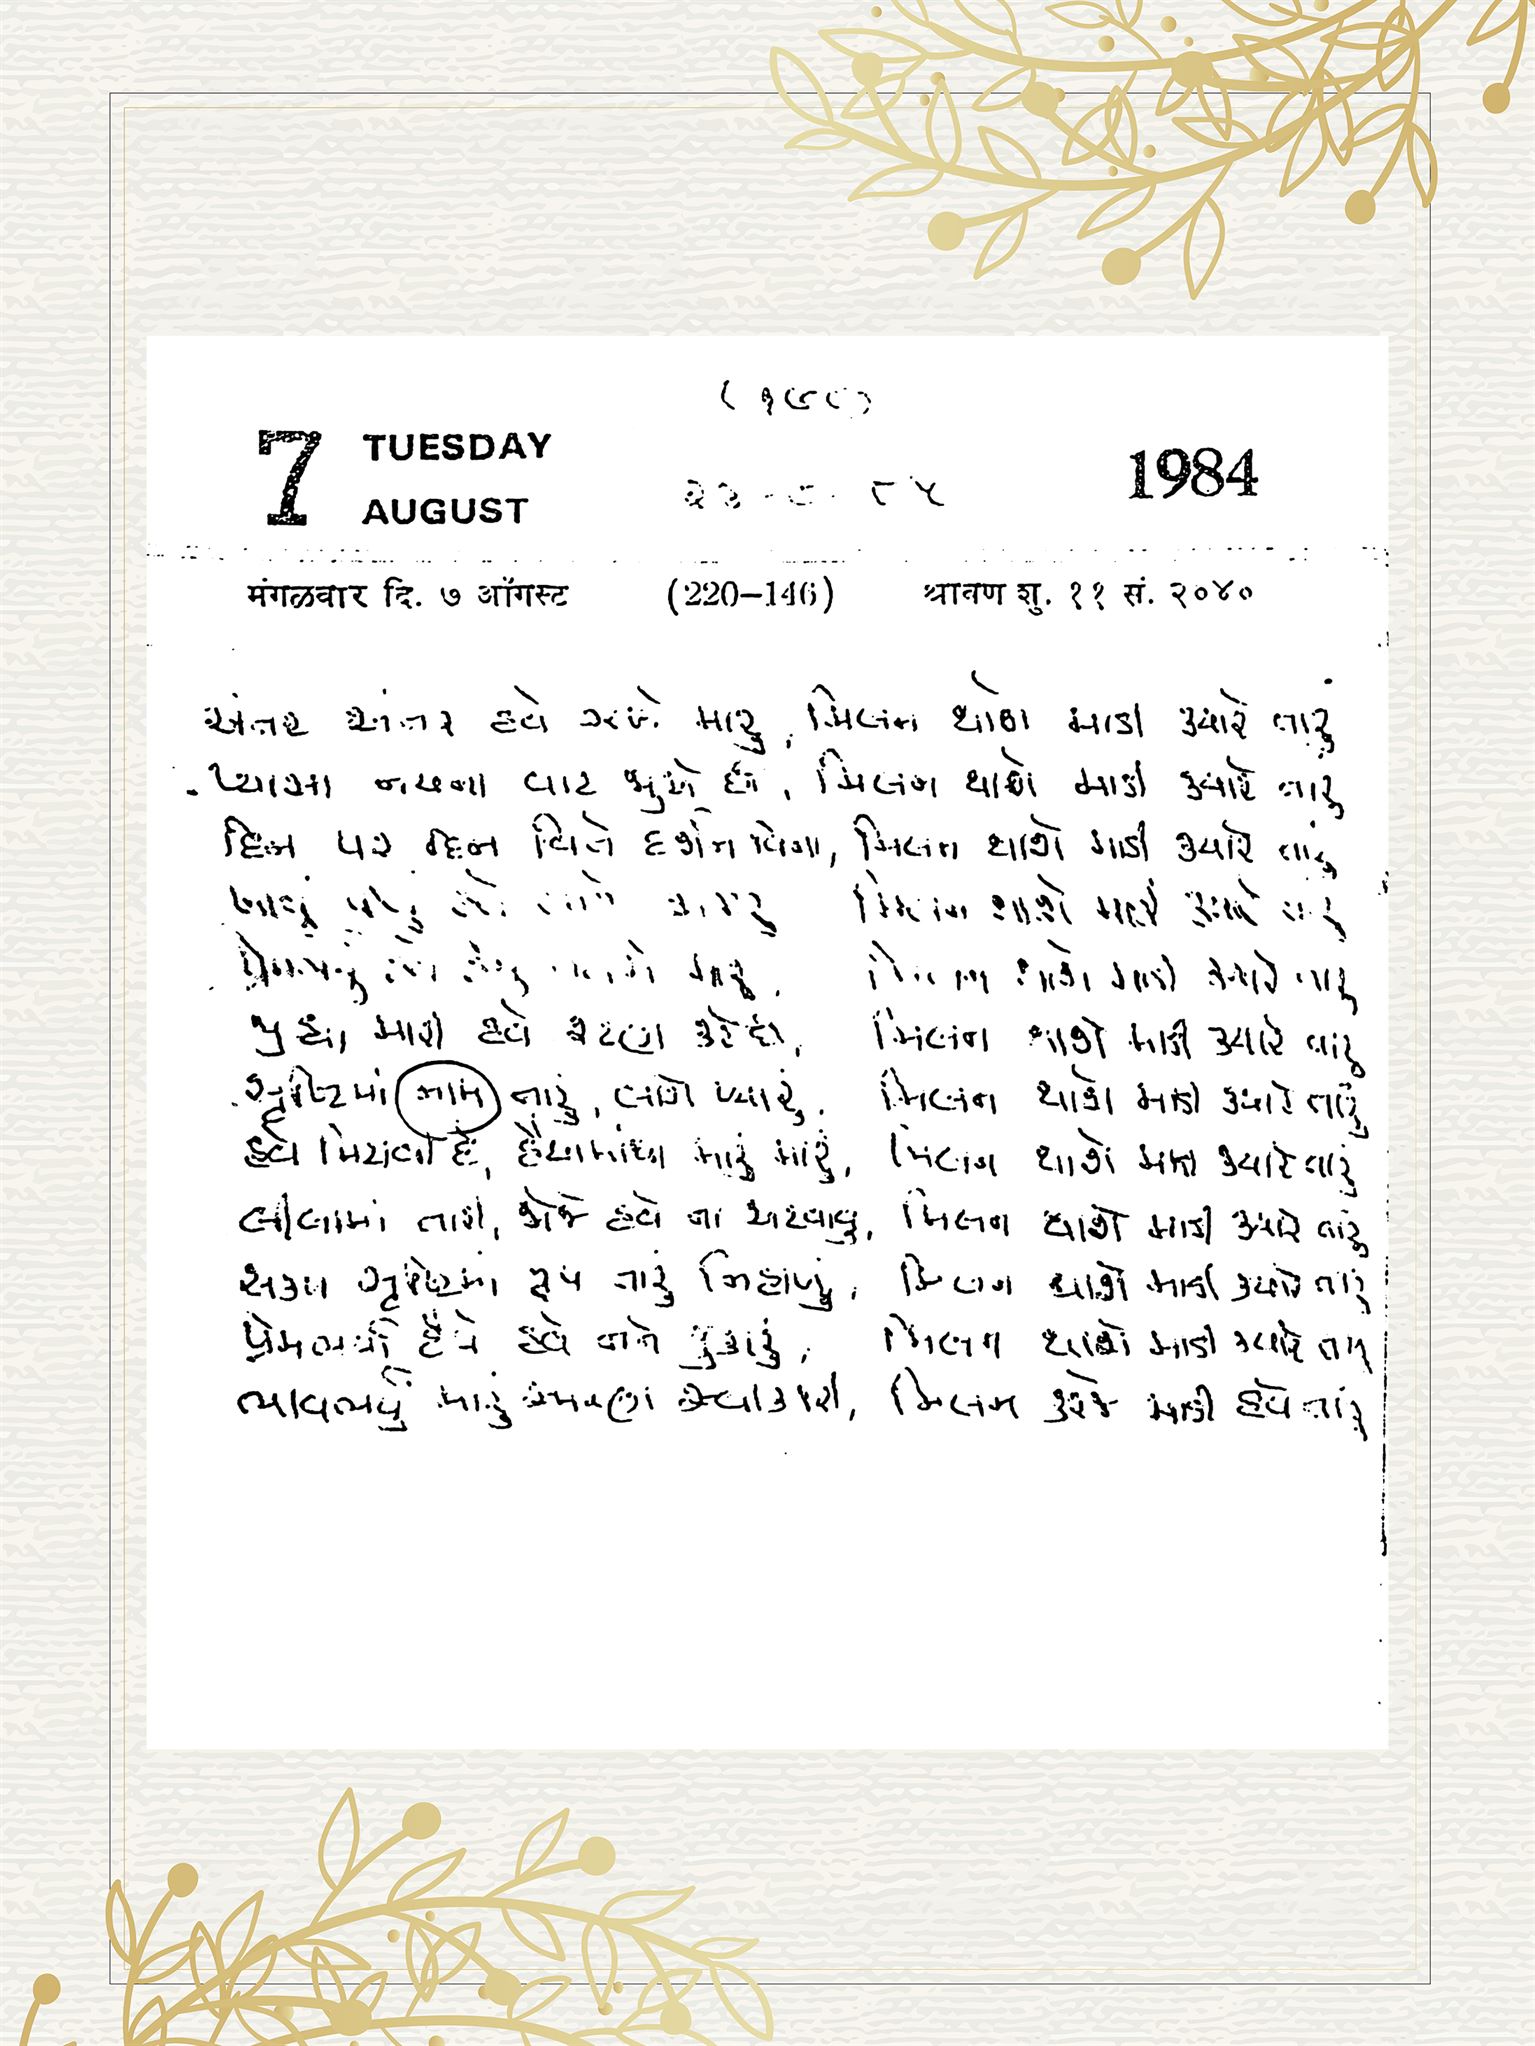 7 TUESDAY AUGUST 1984
मंगळवार दि. ७ ऑगस्ट (220-146) श्रावण शु. ११ सं. २०४०
અંતર હવે મારું, મિલન થાશે માડી ક્યારે તારું
પ્યાસા નયના વાટ જુએ છે, મિલન થાશે માડી ક્યારે તારું
દિન પર દિન વિતે દર્શન વિના, મિલન થાશે માડી ક્યારે તારું
મિલન થાશે માડી ક્યારે તારું
મારું, મિલન થાશે માડી ક્યારે તારું
જીહ્વા મારી હવે રટણ કરે છે, મિલન થાશે માડી ક્યારે તારું
સૃષ્ટિમાં નામ તારું, લાગે પ્યારું, મિલન થાશે માડી ક્યારે તારું
હવે મિટાવી દે, હૈયામાંથી મારું મારું, મિલન થાશે માડી ક્યારે તારું
લીલામાં તારી, જોજે હવે ના અટવાવું, મિલન થાશે માડી ક્યારે તારું
સકળ સૃષ્ટિમાં રૂપ તારું નિહાળું, મિલન થાશે માડી ક્યારે તારું
પ્રેમભર્યા હૈયે હવે તને પુકારું, મિલન થાશે માડી ક્યારે તારું
ભાવભર્યું મારું સ્વીકારી, મિલન કરજે માડી હવે તારું